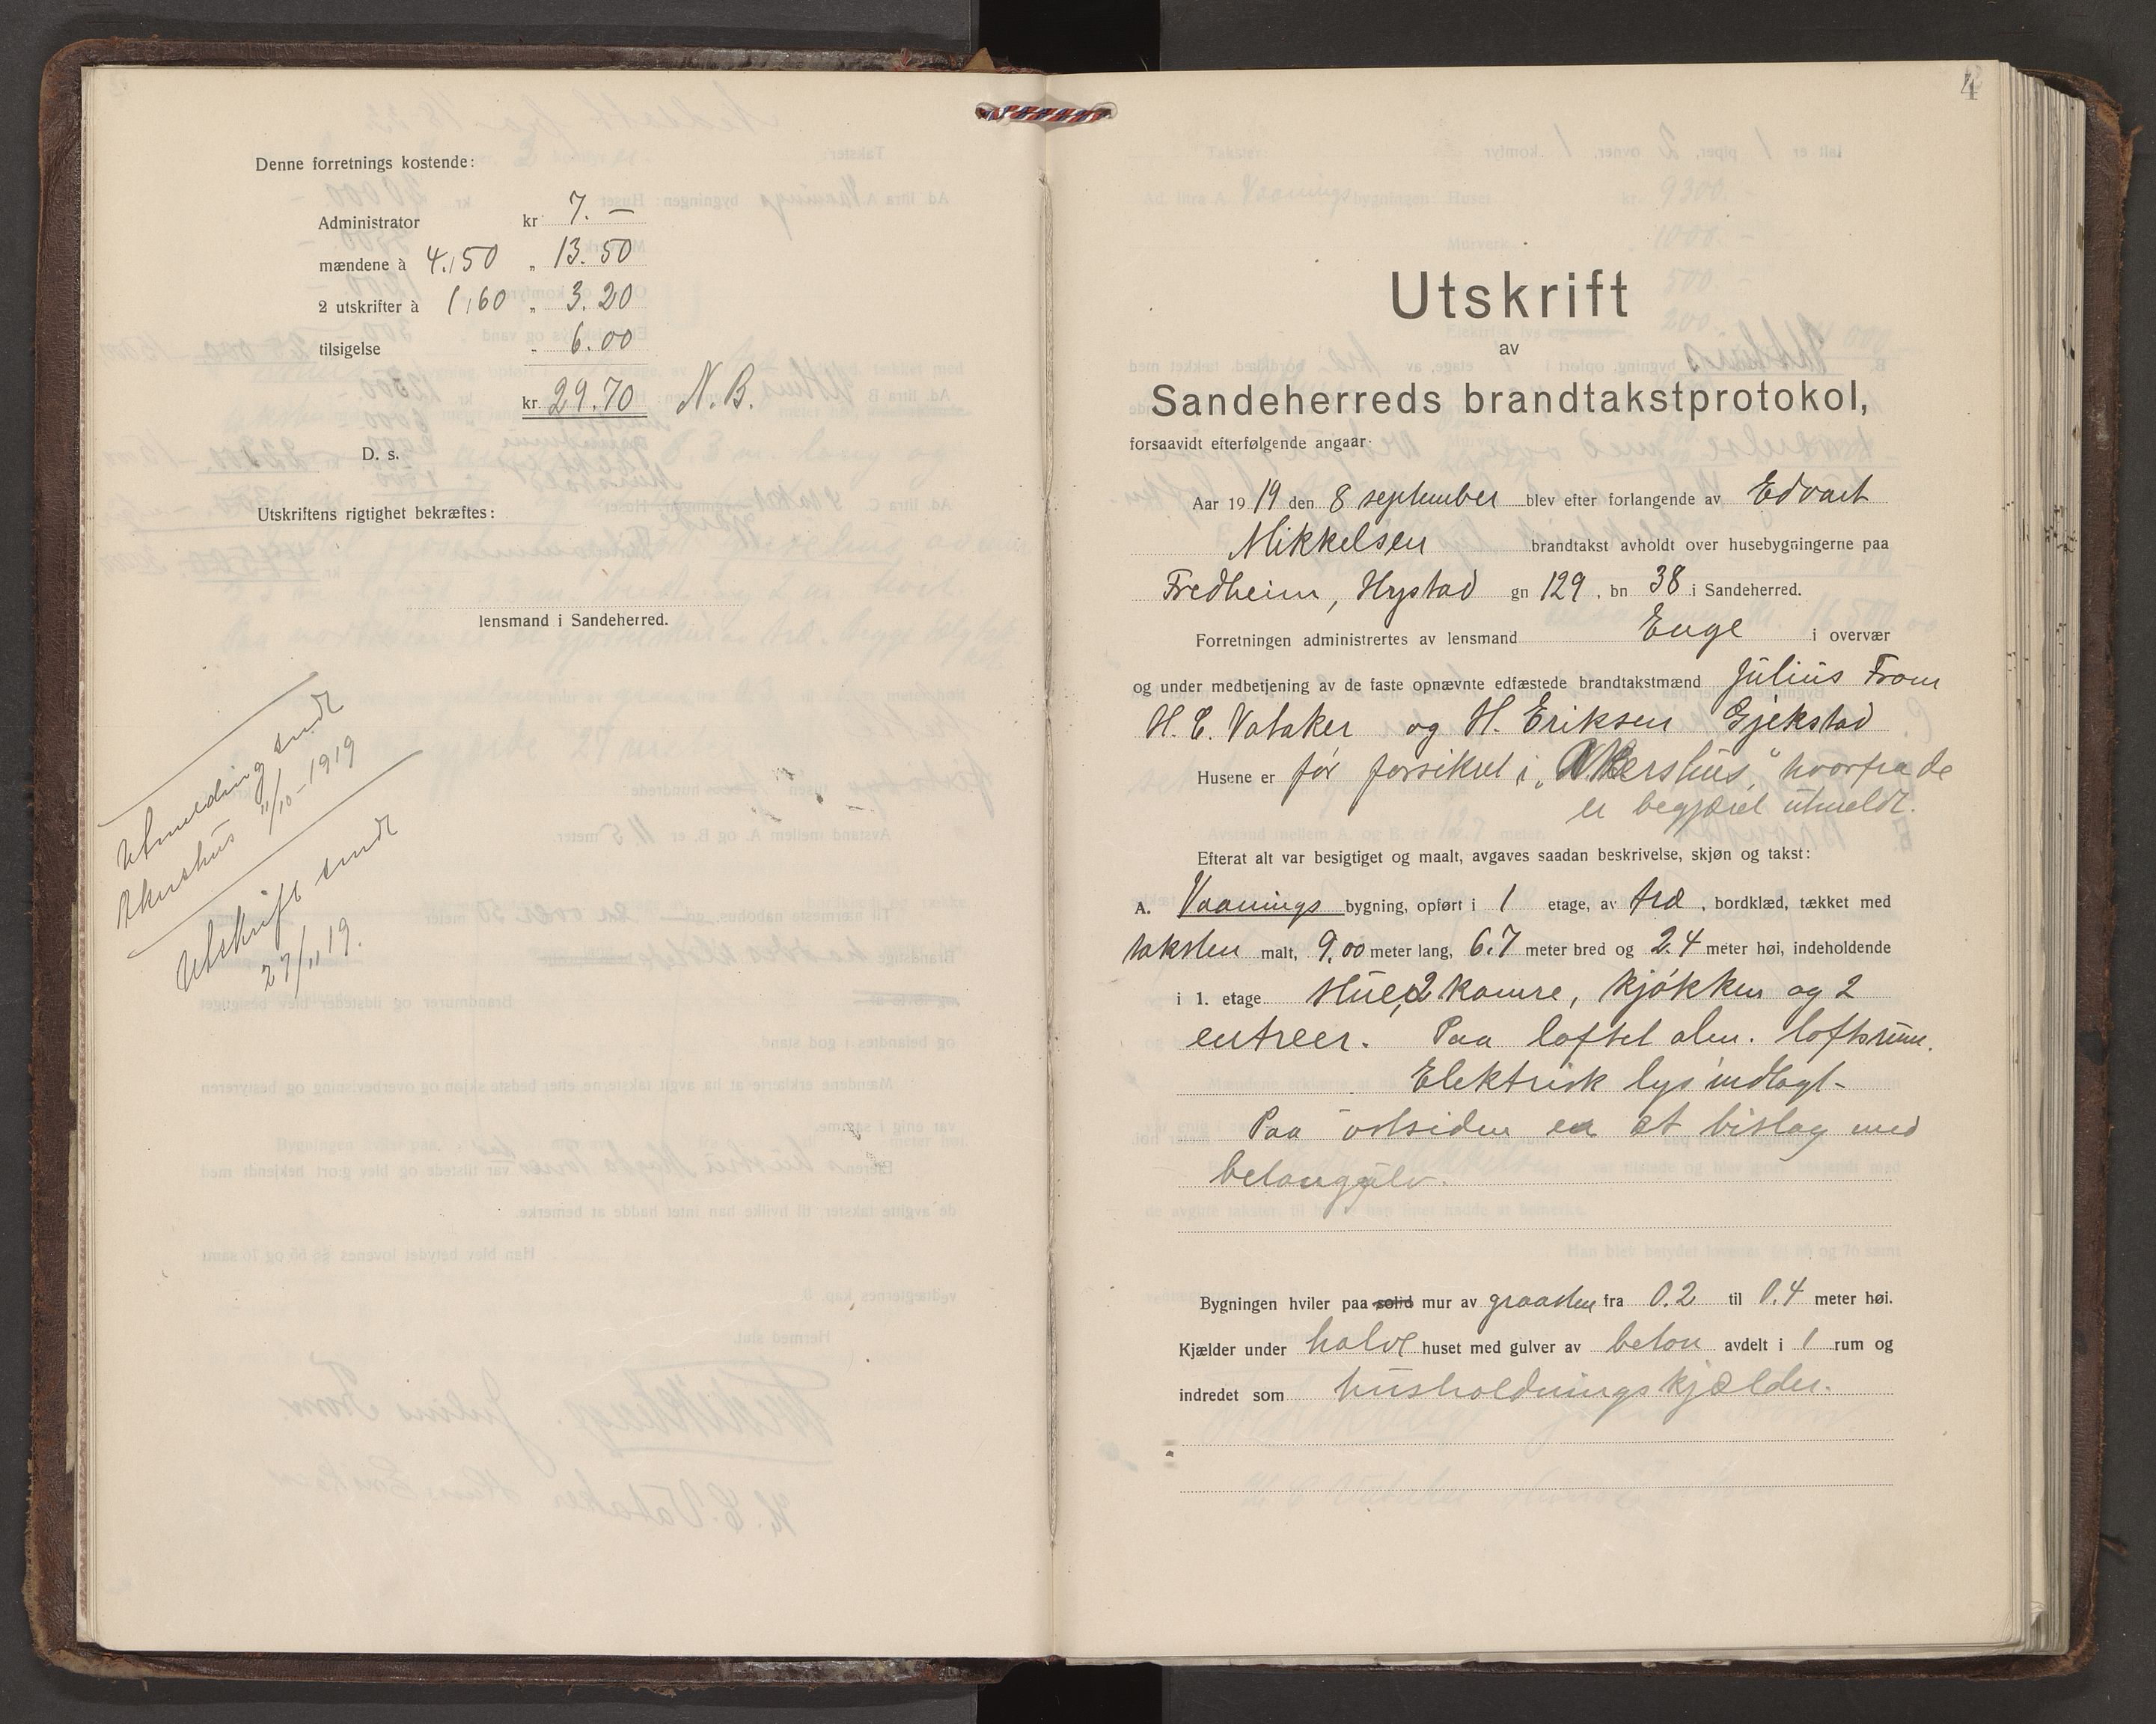 Denne forretnings kostende:
Administrator kr 7. —
mændene à 4.50 „ 13.50
2 utskrifter à 1,60 „ 3.20
tilsigelse „ 6.00
kr. 29.70 N.B.
D. s.
Utskriftens rigtighet bekræftes:
lensmand i Sandeherred.
Utmelding sendt
Akershus 11/10-1919
Utskrift sendt
27/11 19.
4
Utskrift
av
Sandeherreds brandtakstprotokol,
forsaavidt efterfølgende angaar:
Aar 1919 den 8 september blev efter forlangende av Edvart
Mikkelsen brandtakst avholdt over husebygningerne paa
Fredheim, Hystad gn 129, bn 38 i Sandeherred.
Forretningen administrertes av lensmand Enge i overvær
og under medbetjening av de faste opnævnte edfæstede brandtakstmænd Julius From
H. C. Vataker og H. Eriksen Gjekstad
Husene er før forsikret i „Akershus" hvorfra de
er begjæret utmeldt.
Efterat alt var besigtiget og maalt, avgaves saadan beskrivelse, skjøn og takst:
A. Vaanings bygning, opført i 1 etage, av træ, bordklæd, tækket med
taksten malt, 9,00 meter lang, 6.7 meter bred og 2.4 meter høi, indeholdende
i 1. etage stue, 2 kamre, kjøkken og 2
entreer. Paa loftet alm. loftsrum.
Elektrisk lys indlagt-
Paa østsiden er et bislag med
betongulv.
Bygningen hviler paa solid mur av graasten fra 0.2 til 0.4 meter høi.
Kjælder under halve huset med gulver av beton avdelt i 1 rum og
indredet som husholdningskjælder.